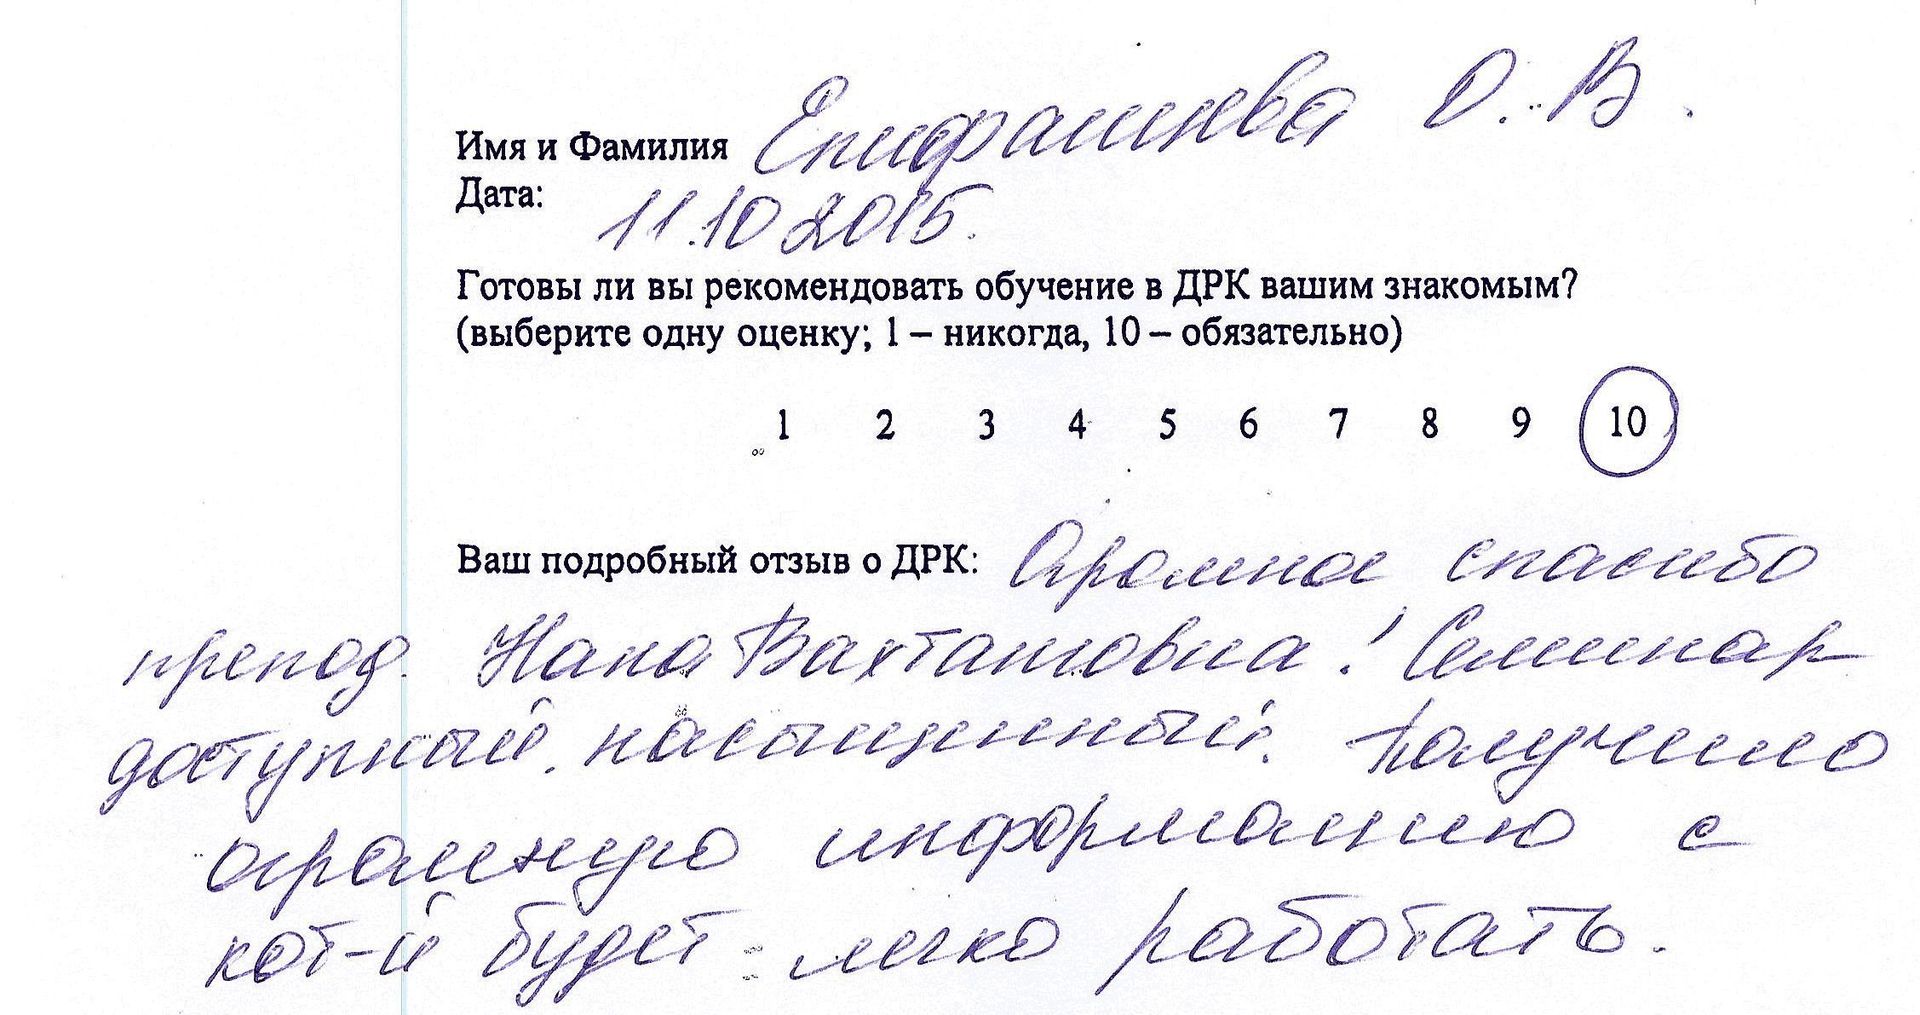 Имя и Фамилия Епифанцева О. В.
Дата: 11.10 2015.
Готовы ли вы рекомендовать обучение в ДРК вашим знакомым?
(выберите одну оценку; 1 – никогда, 10 – обязательно)
1 2 3 4 5 6 7 8 9 10
Ваш подробный отзыв о ДРК: Огромное спасибо
препод. Нана Вахтанговна! Семинар
доступный, насыщенный. Получено
огромную информацию с
кот-й будет легко работать.